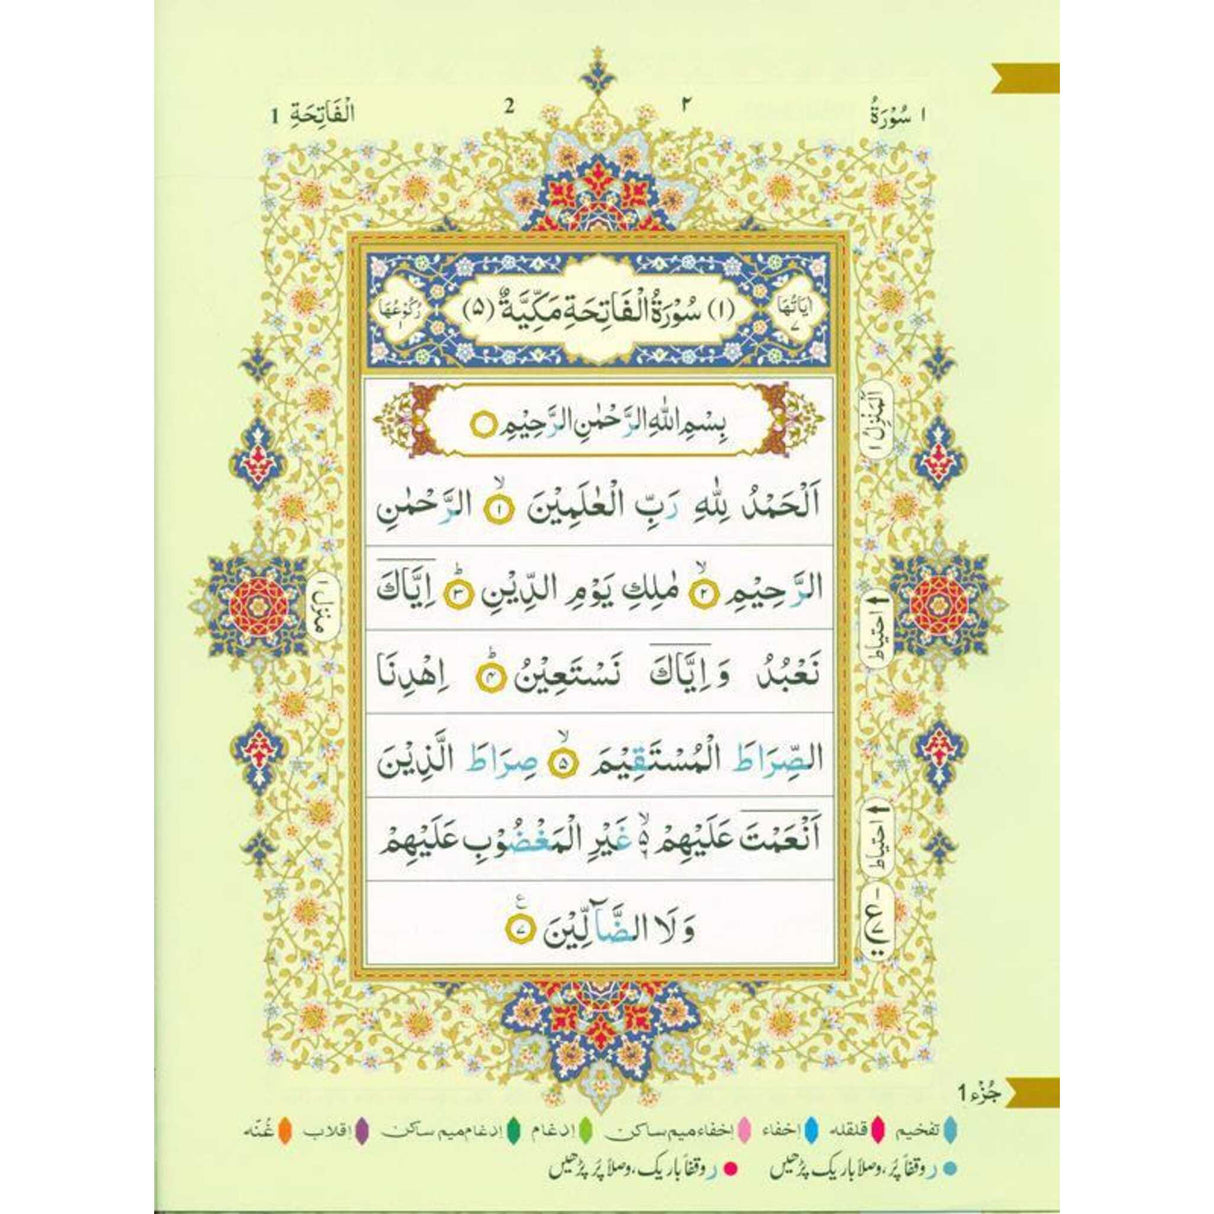 ١ سُوْرَةُ ٢ 2 الْفَاتِحَةِ 1
اٰيَاتُهَا ٧ (١) سُوْرَةُ الْفَاتِحَةِ مَكِّيَّةٌ (٥) رُكُوْعُهَا ١
بِسْمِ اللّٰهِ الرَّحْمٰنِ الرَّحِيْمِ
اَلْحَمْدُ لِلّٰهِ رَبِّ الْعٰلَمِيْنَ ۙ ١ الرَّحْمٰنِ
الرَّحِيْمِ ۙ ٢ مٰلِكِ يَوْمِ الدِّيْنِ ؕ ٣ اِيَّاكَ
نَعْبُدُ وَ اِيَّاكَ نَسْتَعِيْنُ ؕ ٤ اِهْدِنَا
الصِّرَاطَ الْمُسْتَقِيْمَ ۙ ٥ صِرَاطَ الَّذِيْنَ
اَنْعَمْتَ عَلَيْهِمْ ۙ۬ غَيْرِ الْمَغْضُوْبِ عَلَيْهِمْ
وَلَا الضَّآلِّيْنَ ع ٧
اَلْمَنْزِلُ ١
منزل ١
احتیاط
احتیاط
ع
جُزْء 1
تفخیم قلقله إخفاء إخفاء میم ساکن إدغام إدغام میم ساکن إقلاب غُنّه
ر وقفاً پُر، وصلاً باریک پڑھیں ر وقفاً باریک، وصلاً پُر پڑھیں